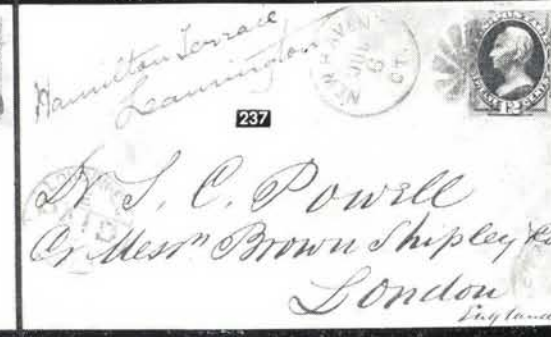 Hamilton Terrace
Leamington
NEW HAVEN CT.
JUL
237
Dr S. C. Powell
Cr Messrs Brown Shipley & Co
London
England